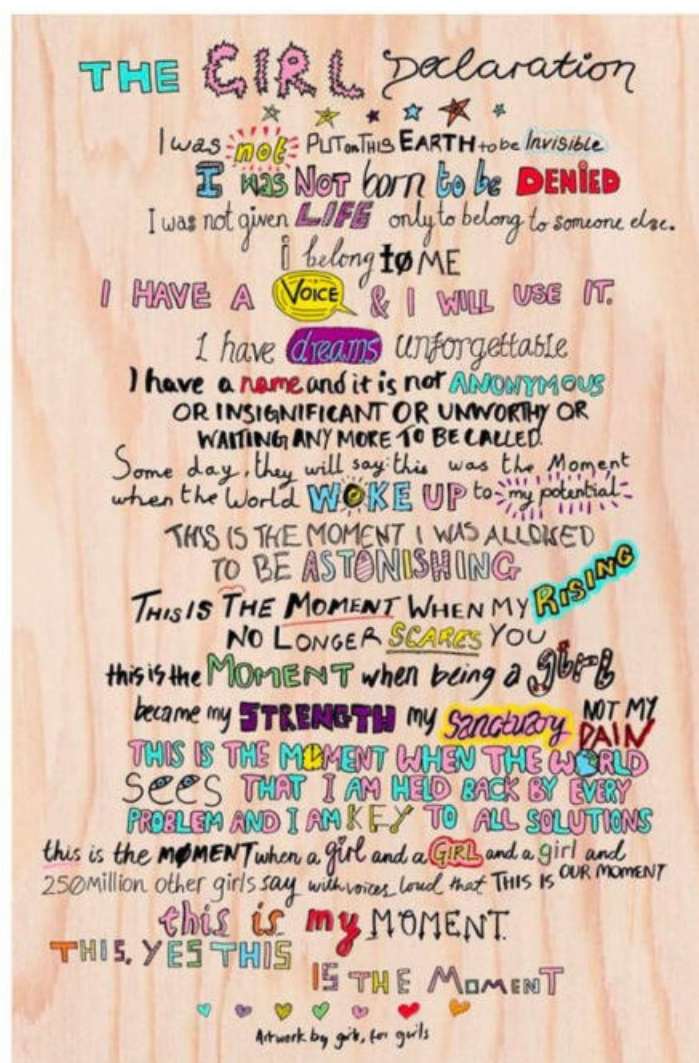 THE GIRL Declaration
I was not PUT on THIS EARTH to be Invisible
I was NOT born to be DENIED
I was not given LIFE only to belong to someone else.
i belong to ME
I HAVE A VOICE & I WILL USE IT.
I have dreams unforgettable
I have a name and it is not ANONYMOUS
OR INSIGNIFICANT OR UNWORTHY OR
WAITING ANY MORE TO BE CALLED.
Some day, they will say: this was the Moment
when the World WOKE UP to my potential
THIS IS THE MOMENT I WAS ALLOWED
TO BE ASTONISHING
THIS IS THE MOMENT WHEN MY RISING
NO LONGER SCARES YOU
this is the MOMENT when being a girl
became my STRENGTH my sanctuary NOT MY PAIN
THIS IS THE MOMENT WHEN THE WORLD
SEES THAT I AM HELD BACK BY EVERY
PROBLEM AND I AM KEY TO ALL SOLUTIONS
this is the MOMENT when a girl and a GIRL and a girl and
250 Million other girls say with voices loud that THIS IS OUR MOMENT
this is my MOMENT.
THIS, YES THIS
IS THE MOMENT
Artwork by girls, for girls